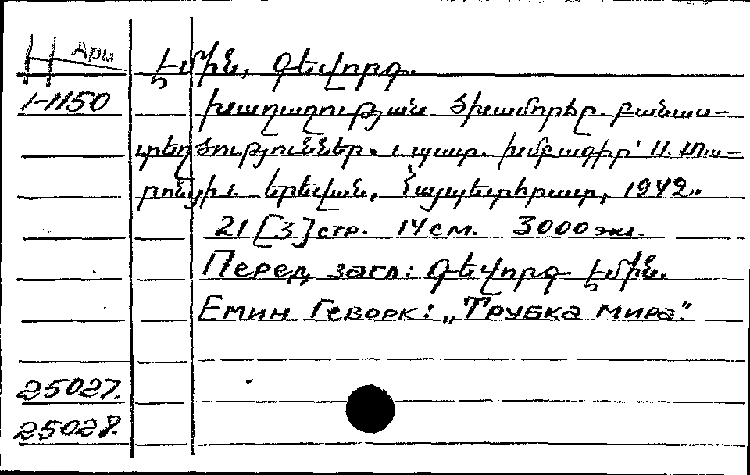 Н Ари
1-1150
Էմին, Գեվորգ.
Խաղաղության ծխամորճը. բանաս-
տեղծություններ. պատ. խմբագիր՝ Ս. Տա-
րոնցի. Երեվան, Հայպետհրատ, 1949.
21 [3] стр. 14 см. 3000 экз.
Перед загл: Գեվորգ Էմին.
Емин Геворк: „Трубка мира".
25027.
25028.